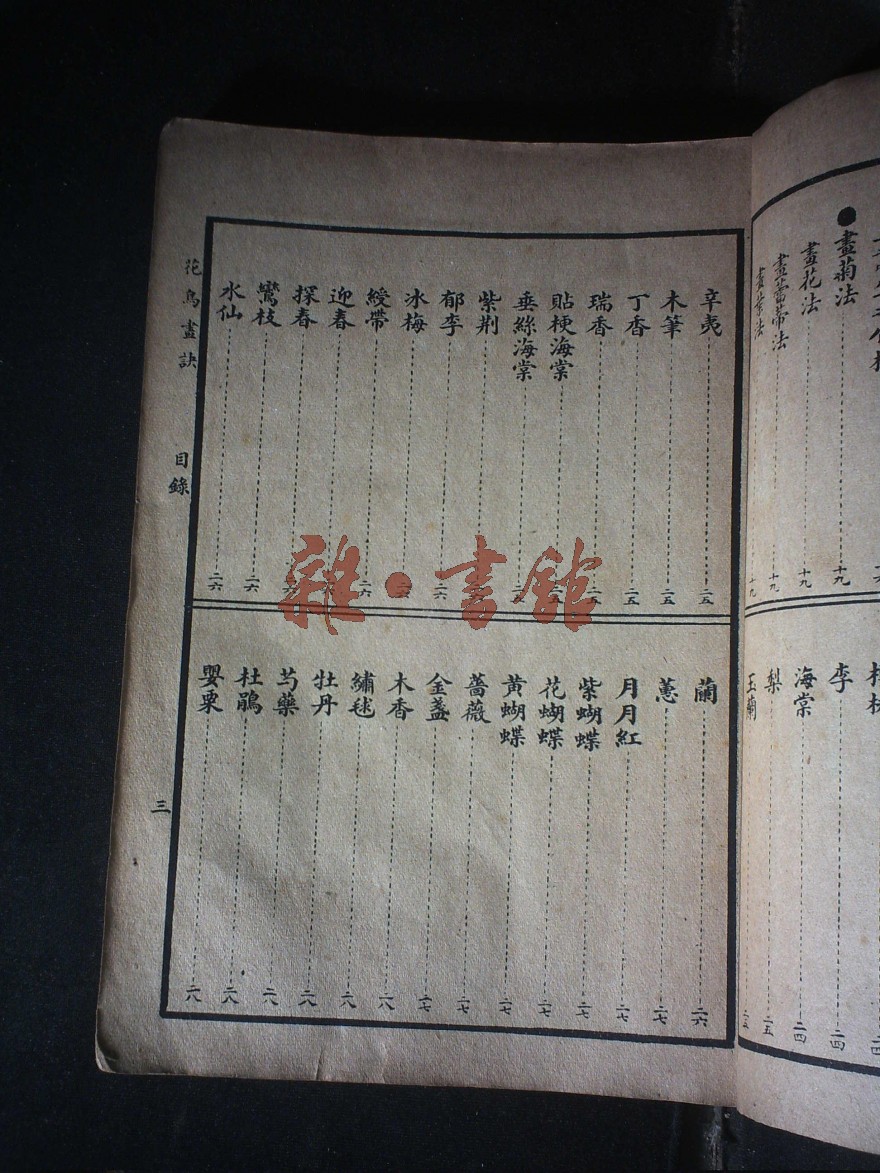 ●畫菊法 十九
畫花法 十九
畫蕾蒂法 十九
畫葉法 十九
李 二四
海棠 二四
梨 二五
玉蘭
辛夷 二五
木筆 二五
丁香 二五
瑞香
貼梗海棠
垂絲海棠
紫荆
郁李 二六
冰梅
綬帶 二六
迎春
探春
鸞枝 二六
水仙 二六
蘭 二六
蕙 二七
月月紅 二七
紫蝴蝶 二七
花蝴蝶 二七
黃蝴蝶 二七
薔薇 二七
金盞 二七
木香 二八
繡毬 二八
牡丹 二八
芍藥 二八
杜鵑 二八
嬰粟 二八
花鳥畫訣 目錄 三
雜·書館